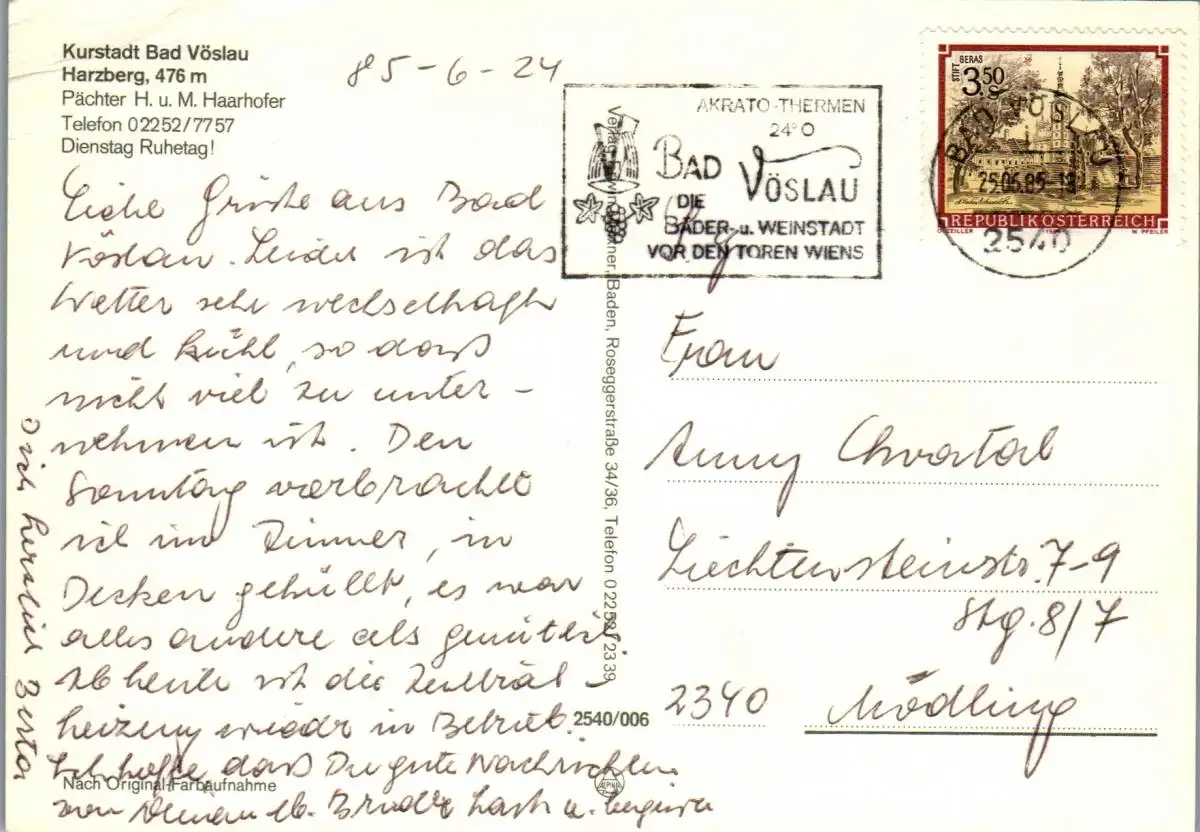 Kurstadt Bad Vöslau
Harzberg, 476 m
Pächter H. u. M. Haarhofer
Telefon 02252/7757
Dienstag Ruhetag!
85-6-24
AKRATO-THERMEN
24° C
BAD VÖSLAU
DIE
BÄDER- u. WEINSTADT
VOR DEN TOREN WIENS
STIFT GERAS
3.50
REPUBLIK ÖSTERREICH
W. PFEILER
BAD VÖSLAU
25.06.85-18
2540
Liebe Grüße aus Bad
Vöslau. Leider ist das
Wetter sehr wechselhaft
und kühl, so daß
nicht viel zu unter-
nehmen ist. Den
Sonntag verbrachte
ich im Zimmer, in
Decken gehüllt, es war
alles andere als gemütlich.
Ab heute ist die Zentral-
heizung wieder in Betrieb.
Ich hoffe, daß Du gute Nachrichten
von Deinem lb. Bruder hast u.
Dich herzlich
Verlag
Baden, Roseggerstraße 34/36, Telefon 02252/2339
2540/006
Nach Original-Farbaufnahme
Frau
Anny Chvatal
Liechtensteinstr. 7-9
Stg. 8/7
2340 Mödling